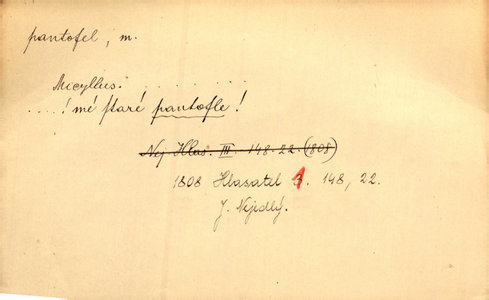 pantofel, m.
Micyllus: . . . . . . . . .
. . . . ! mé staré pantofle !
Nej. Hlas. III. 148. 22. (1808)
1808 Hlasatel 3. 148, 22.
J. Nejedlý.